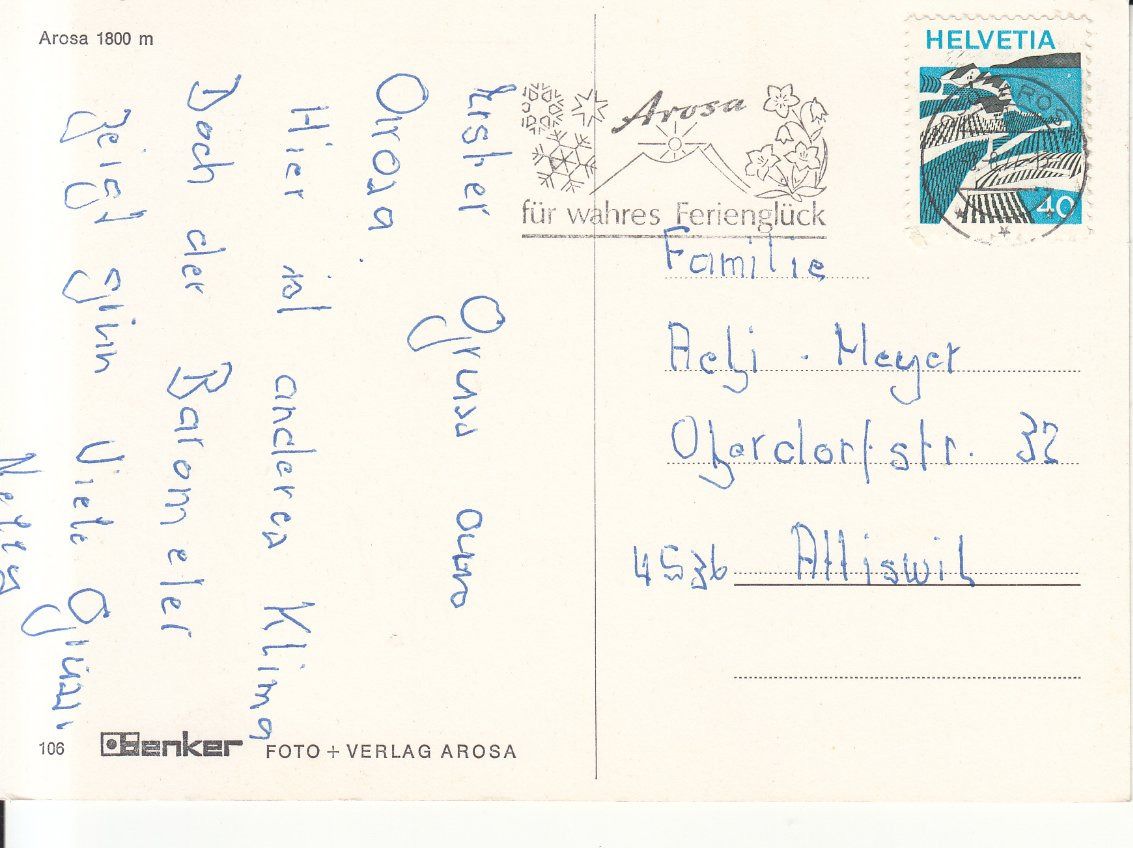 Arosa 1800 m
Erster Gruss aus
Arosa
Hier ist anderes Klima
Doch der Barometer
zeigt
Viele Grüsse
Nelly
106 Denker FOTO + VERLAG AROSA
Arosa
für wahres Ferienglück
HELVETIA
40
AROSA
Familie
Meyer
Oberdorfstr. 32
4536 Attiswil